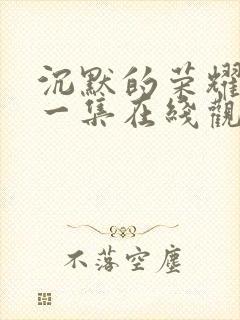 沉默的荣耀
一集在线觀
不落空塵